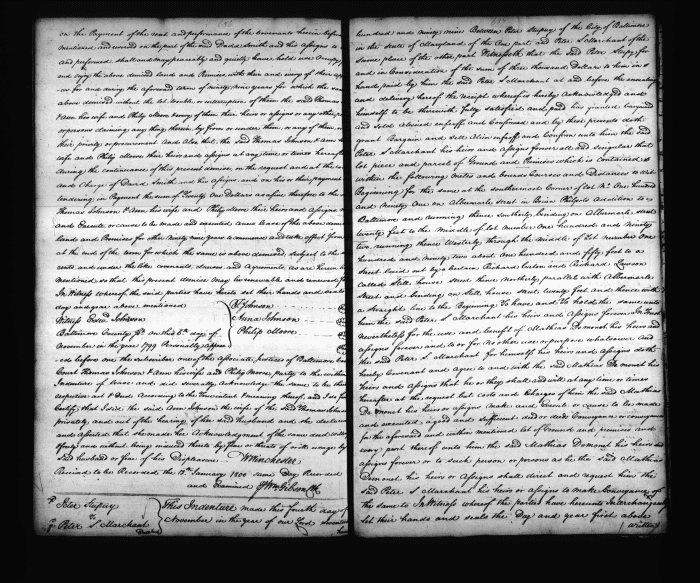 on the Payment of the rent and performance of the covenants herein before
mentioned and covenants on the part of the said David Smith and his assigns to
and performed shall and may peaceably and quietly have hold use occupy
and enjoy the above demised lands and Premises with them and every of their appur
ces for and during the aforesaid term of ninety nine years for which the same
above demised without the let trouble or interruption of them the said Thomas
& Ann his wife and Philip Moore or any of them their heirs or assigns or any other person
or persons claiming any thing therein by from or under them or any of them
their privity or procurement And Also that the said Thomas Johnson & Ann
wife and Philip Moore their heirs and assigns at any time or times hereafter
during the continuance of this present demise on the request and at the
and Charge of David Smith and his assigns and on his or their payment
tendering in Payment the sum of Twenty One Dollars as a fine therefore to the
Thomas Johnson & Ann his wife and Philip Moore their heirs and Assigns
and Execute or cause to be made and executed a new lease of the above demised
lands and Premises for other Ninety nine years to commence and take effect from
at the end of the term for which the same is above demised subject to the
rents and under the like covenants, clauses and Agreements, as are herein
mentioned so that this present demise may be renewable and renewed
In Witness whereof the said parties have hereto set their hands and seals
day and year above mentioned
Witness
T Johnson
Anna Johnson
Philip Moore
Baltimore County Ss. on this 6th day of
November in the year 1799 Personally Appear
ed before me the subscriber one of the Associate justices of Baltimore
Court Thomas Johnson & Ann his wife and Philip Moore party to the within
Indenture of lease and did severally Acknowledge the same to be their
respective act & Deed According to the true intent & meaning thereof and I do
Certify that I did the said Ann Johnson the wife of the said Thomas Johnson
privately and out of the hearing of her said Husband and she declared
and asserted that she made her Acknowledgment of the same deed
freely and without being induced thereto by fear or threats of ill usage by
said Husband or fear of his Displeasure W Winchester
Received to be Recorded the 12th January 1800 same Day Recorded
and Examined Wm Gibson Clk
Peter
To
Peter S Marchant
This Indenture made this fourth day of
November in the year of our Lord seventeen
hundred and ninety nine Between Peter of the City of Baltimore
in the state of Maryland of the One part and Peter S Marchant of the
same place of the other part Witnesseth that the said Peter for
and in Consideration of the sum of three thousand Dollars to him in
hand paid by him the said Peter S Marchant at and before the ensealing
and delivery hereof the receipt whereof is hereby Acknowledged and
himself to be therewith fully satisfied and paid has granted bargained
and Sold aliened enfeoff'd and Confirmed and by these presents doth
grant Bargain and Sell Alien enfeoff and Confirm unto him the said
Peter S Marchant his heirs and Assigns forever all and singular that
lot piece and parcel of Ground and Premises which is contained
within the following metes and bounds Courses and Distances to wit
Beginning for the same at the southernmost Corner of lot No. One hundred
and Ninety One on Albermarle street in Brian Philpots Addition to
Baltimore and running thence southerly binding on Albermarle street
twenty feet to the Middle of lot number One hundred and Ninety
two running thence Westerly through the middle of lot number One
hundred and Ninety two about one hundred and fifty feet to a
street laid out by a certain Richard Caton and Richard Lawson
called State house street thence Northerly parallel with Albermarle
street and binding on State house street twenty feet and thence with
a straight line to the Beginning To have and To hold the same unto
him the said Peter S Marchant his heirs and Assigns forever In trust
nevertheless for the use and benefit of Mathias Domonet his heirs and
assigns forever and to or for no other use or purpose whatsoever And
the said Peter S Marchant for himself his heirs and Assigns doth
hereby Covenant and Agree to and with the said Mathias Domonet his
heirs and assigns that he or they shall and will at any time or times
hereafter at the request but costs and Charges of him the said Mathias
Domonet his heirs or assigns make and Execute or cause to be made
and executed a good and sufficient deed or deeds Conveyance or conveyances
for the aforesaid and within mentioned lot of Ground and premises and
every part thereof unto him the said Mathias Domonet his heirs and
assigns forever or to such person or persons as he the said Mathias
Domonet his heirs or Assigns shall direct and request him the
said Peter S Marchant his heirs or assigns to make Conveyance of
the same to In Witness whereof the parties have hereunto Interchangeably
set their hands and seals the Day and year first above
written